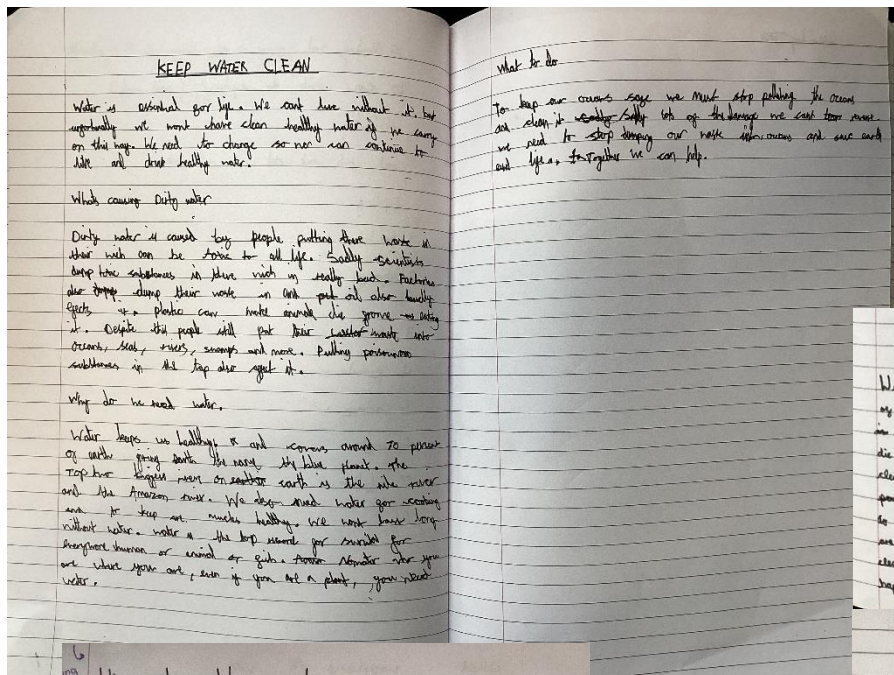 KEEP WATER CLEAN
Water is essential for life. We cant live without it. but
unfortunally we wont have clean healthy water if we carry
on this way. We need to change so we can continue to
live and drink healthy water.
Whats causing Dirty water
Dirty water is caused by people putting there waste in
their wich can be toxic to all life. Sadly scientists
dump toxic substances in there wich is really bad. Factories
also dump their waste in and put oil also
it. plastic can make animals die eating
it. Despite this people still put their waste into
Oceans, seas, rivers, swamps and more. Putting poisonous
substances in the tap also it.
Why do we need water.
Water keeps us healthy, and covers around 70 percent
of earth giving earth the name the blue planet. The
Top two river on earth is the nile river
and the Amazon river. We also need water for cooking
and to keep our muscles healthy. We wont last long
without water. water is the top for survival for
everymore human or animal or fish. Nomater
are where your are, even if you are a plant, you need
water.
What to do
To keep our oceans safe we must stop polluting the oceans
and clean it lots of the damage we cant
we need to stop dumping our waste into oceans and save earth
and life, Together we can help.